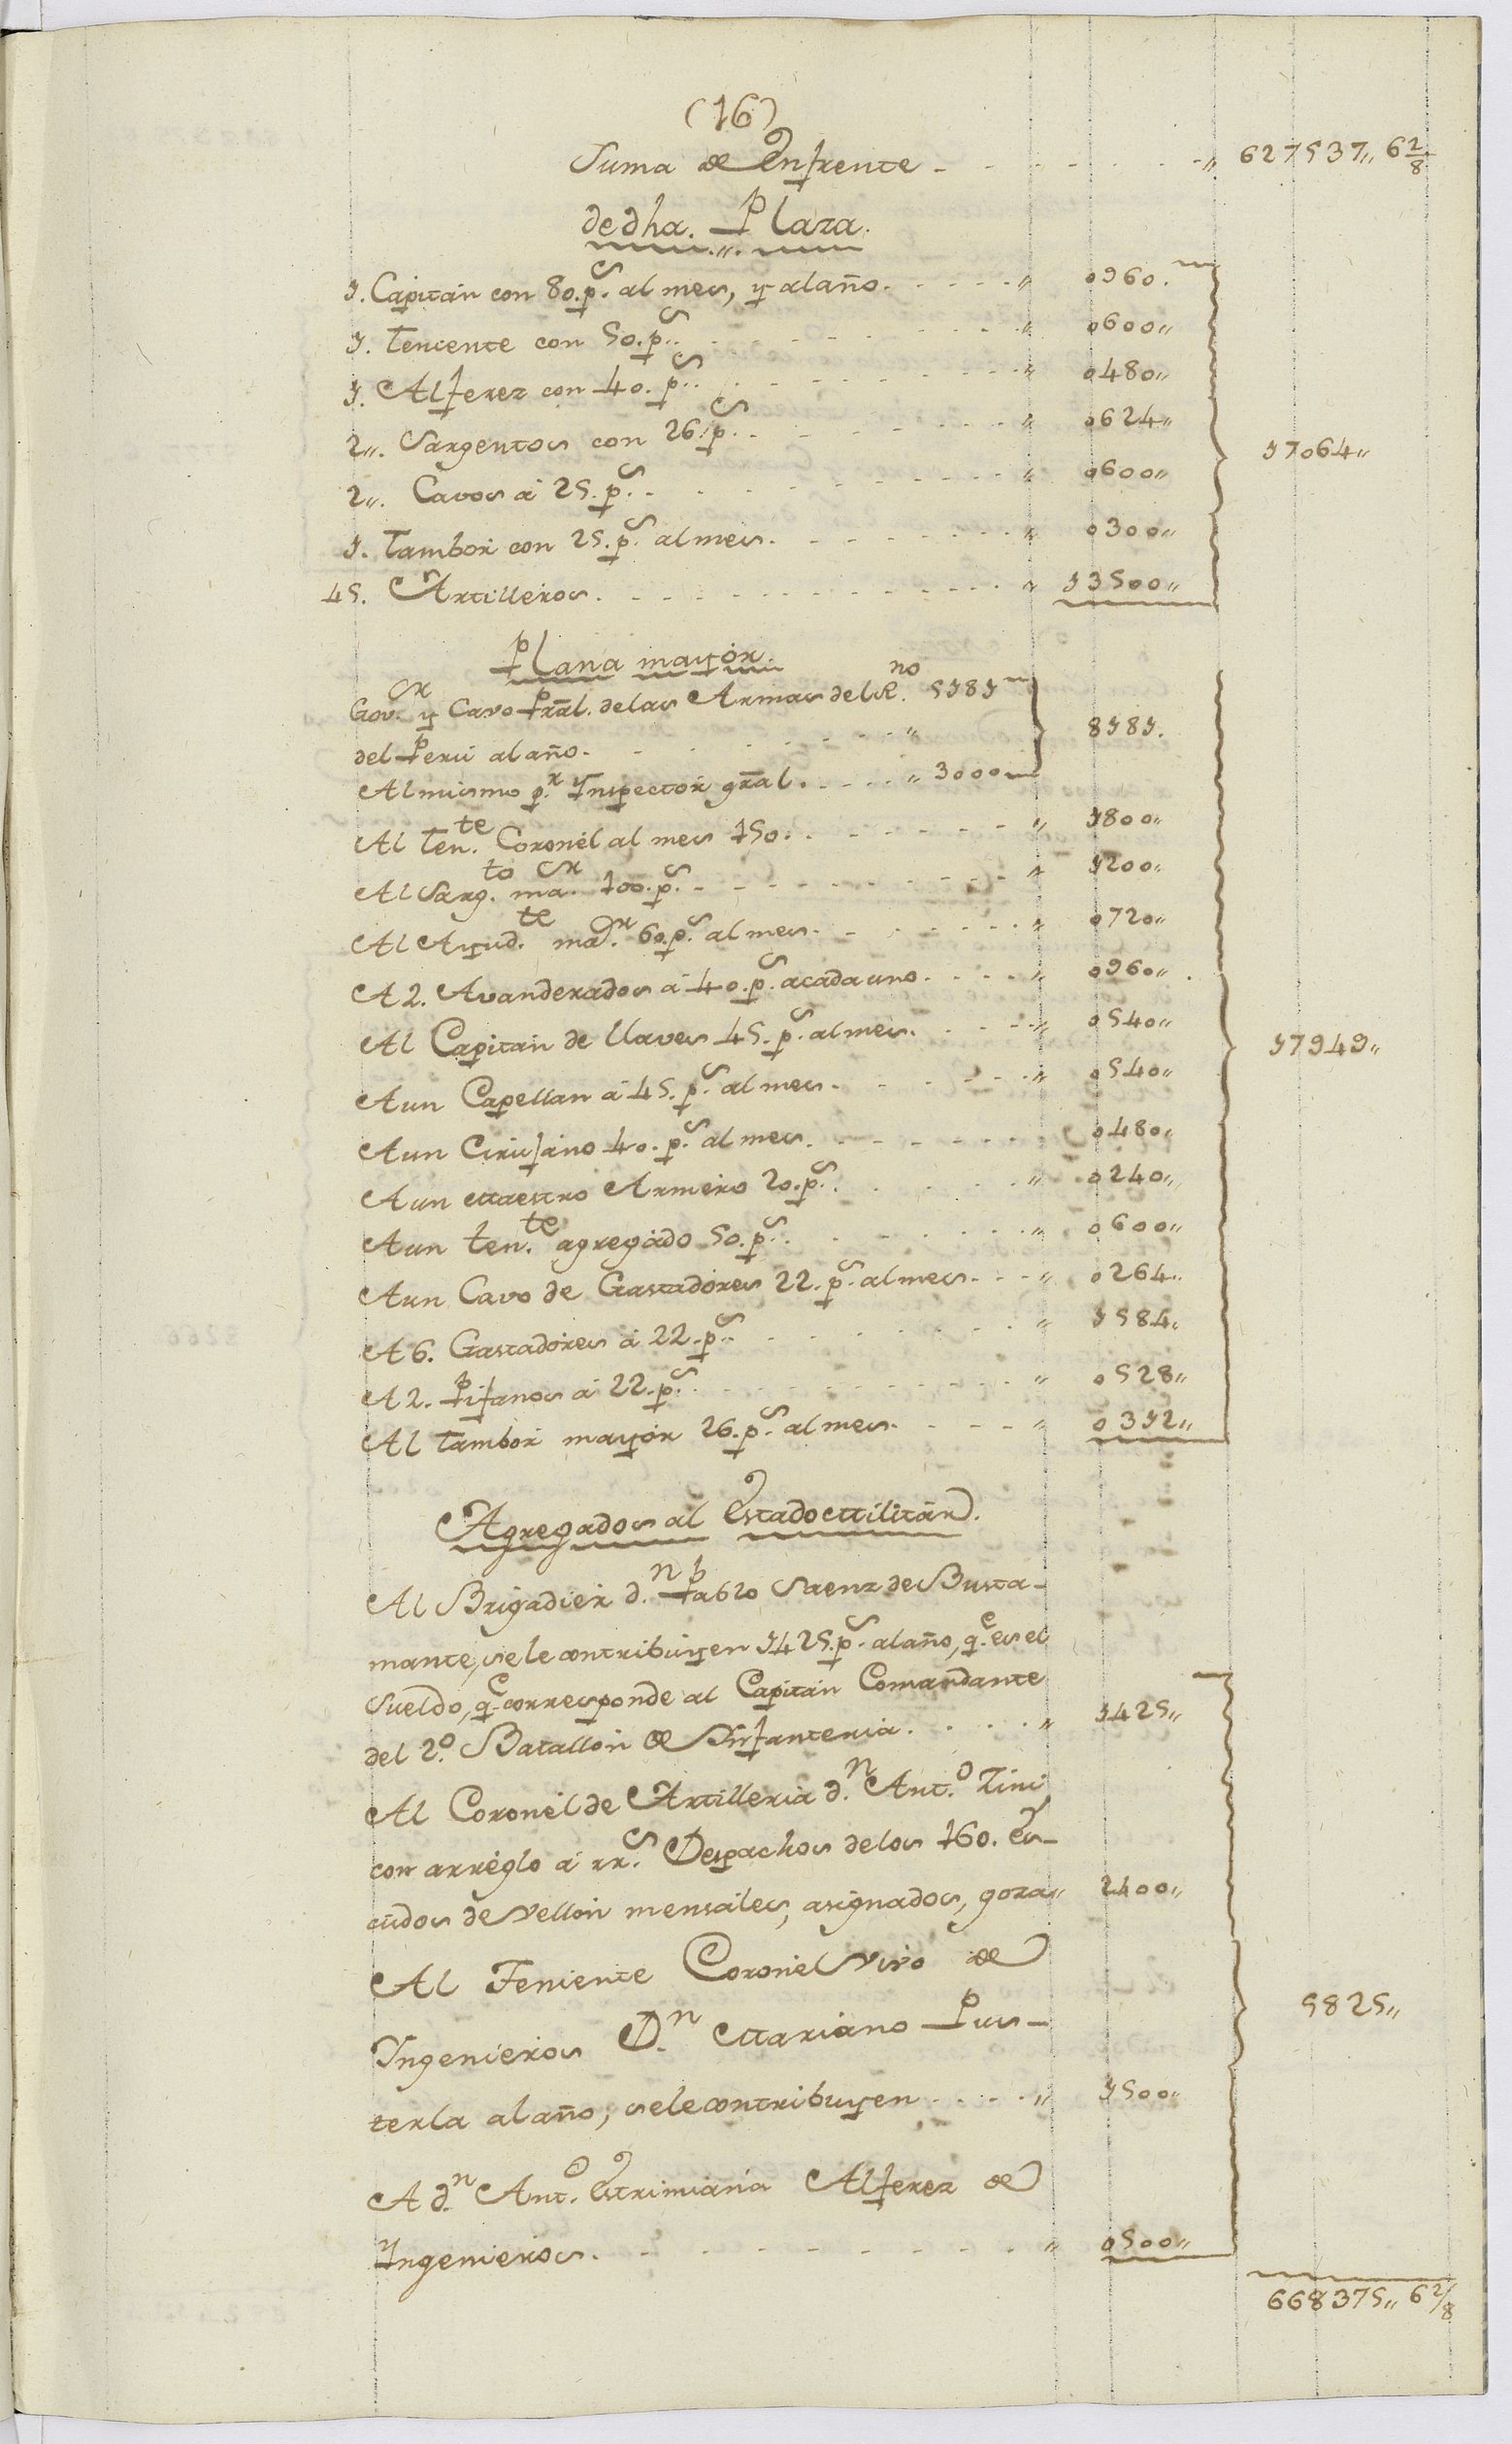 (16)
Suma de Enfrente - - - - - - " 627537" 6 2/8
de dha. Plaza.
1. Capitán con 80. p.s al mes, y al año. - - - - " 0960.
1. Teniente con 50. p.s - - - - - " 0600"
1. Alferez con 40. p.s - - - - - " 0480"
2". Sargentos con 26. p.s - - - - - " 0624"
17064"
2". Cavos á 25. p.s - - - - - " 0600"
1. Tambor con 25. p.s al mes. - - - - - " 0300"
45. Artilleros. - - - - - " 13500"
Plana mayór.
Gov.or y Cavo Prãl. de las Armas del R.no 5181
del Perú al año. - - - - - " 8181.
Al mismo p.r Ynspector grãl. - - - " 3000
Al Ten.te Coronél al mes 150. - - - - - " 1800"
Al Sarg.to ma.or 100. p.s - - - - - " 1200"
Al Ayud.te ma.or 60. p.s al mes. - - - - - " 0720"
A 2. Avanderados á 40. p.s a cada uno. - - - - " 0960"
Al Capitán de llaves 45. p.s al mes. - - - - " 0540"
17949"
A un Capellan á 45. p.s al mes. - - - - - " 0540"
A un Cirujano 40. p.s al mes. - - - - - 0480"
A un Maestro Armero 20. p.s - - - - " 0240"
A un ten.te agregado 50. p.s - - - - - " 0600"
A un Cavo de Gastadores 22. p.s al mes. - - - " 0264"
A 6. Gastadóres á 22. p.s - - - - - " 1584"
A 2. Pifanos á 22. p.s - - - - - " 0528"
Al Tambor mayór 26. p.s al mes. - - - - " 0312"
Agregados al Estado Militár.
Al Brigadier d.n Pablo Saenz de Busta-
mante, se le contribuyen 1425. p.s al año, q.e es el
Sueldo, q.e corresponde al Capitán Comandante
del 2.o Batallón de Ynfanteria. - - - - " 1425"
Al Coronél de Artilleria d.n Ant.o Zini
con arréglo á rr.s Despachos de los 160. Es-
cudos de Vellón mensáles, asignados, goza" 2400"
Al Teniente Coronél Vivo de
5825"
Ingenieros D.n Mariano Pus-
terla al año; se le contribuyen - - - - " 1500"
A d.n Ant.o Estrimiana Alferez de
Yngenieros. - - - - - " 0500"
668375" 6 2/8